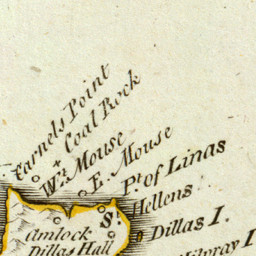 Carnels Point
Coal Rock
Wt. Mouse
E. Mouse
Pt. of Linas
St. Hellens
Dillas I.
Amlock
Dillas Hall